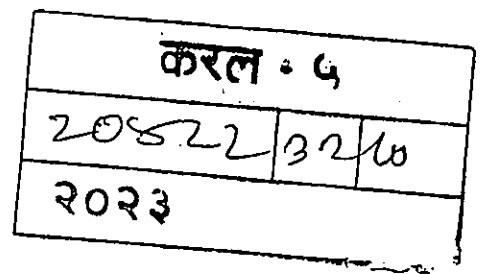 करल - ५
20822 32 60
२०२३